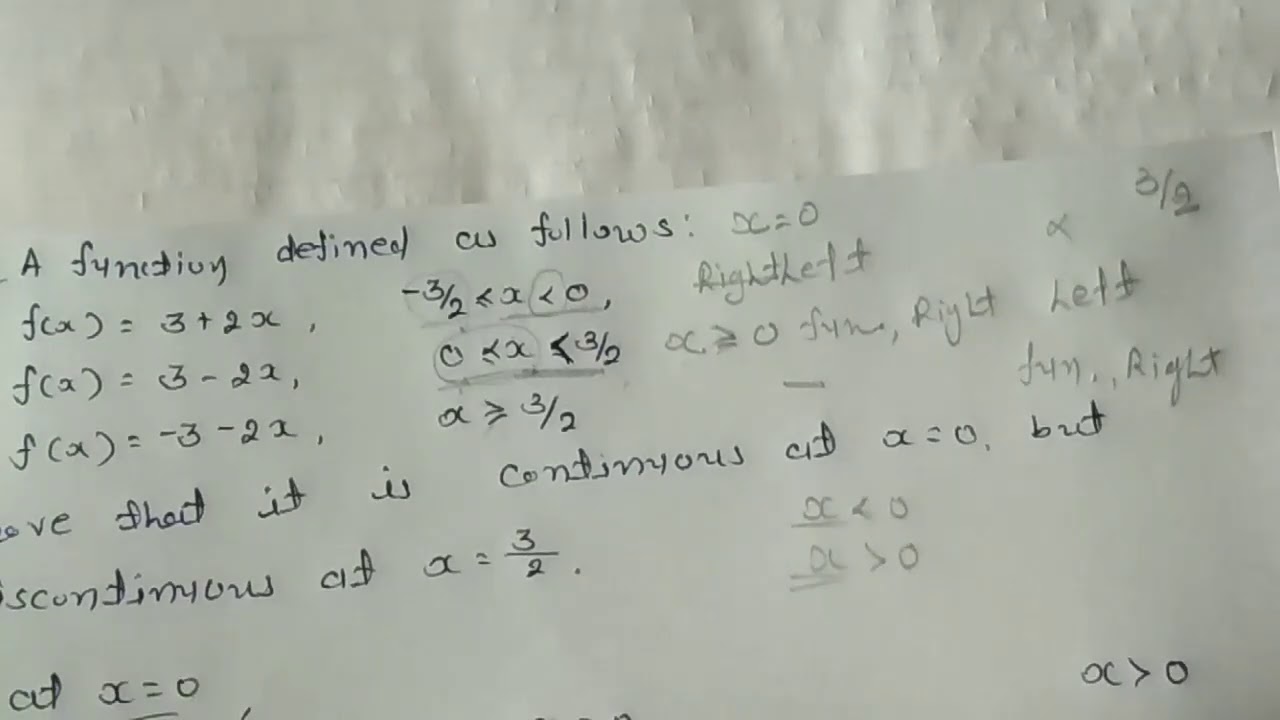 3/2
A function defined as follows: x=0
∝
f(x) = 3+2x, -3/2 ≤ x < 0, Right Left
f(x) = 3-2x, 0 ≤ x < 3/2 x ≥ 0 fun., Right Left
f(x) = -3-2x, x ≥ 3/2 fun., Right
ove that it is continuous at x=0, but
x < 0
iscontinuous at x = 3/2.
x > 0
at x=0
x > 0